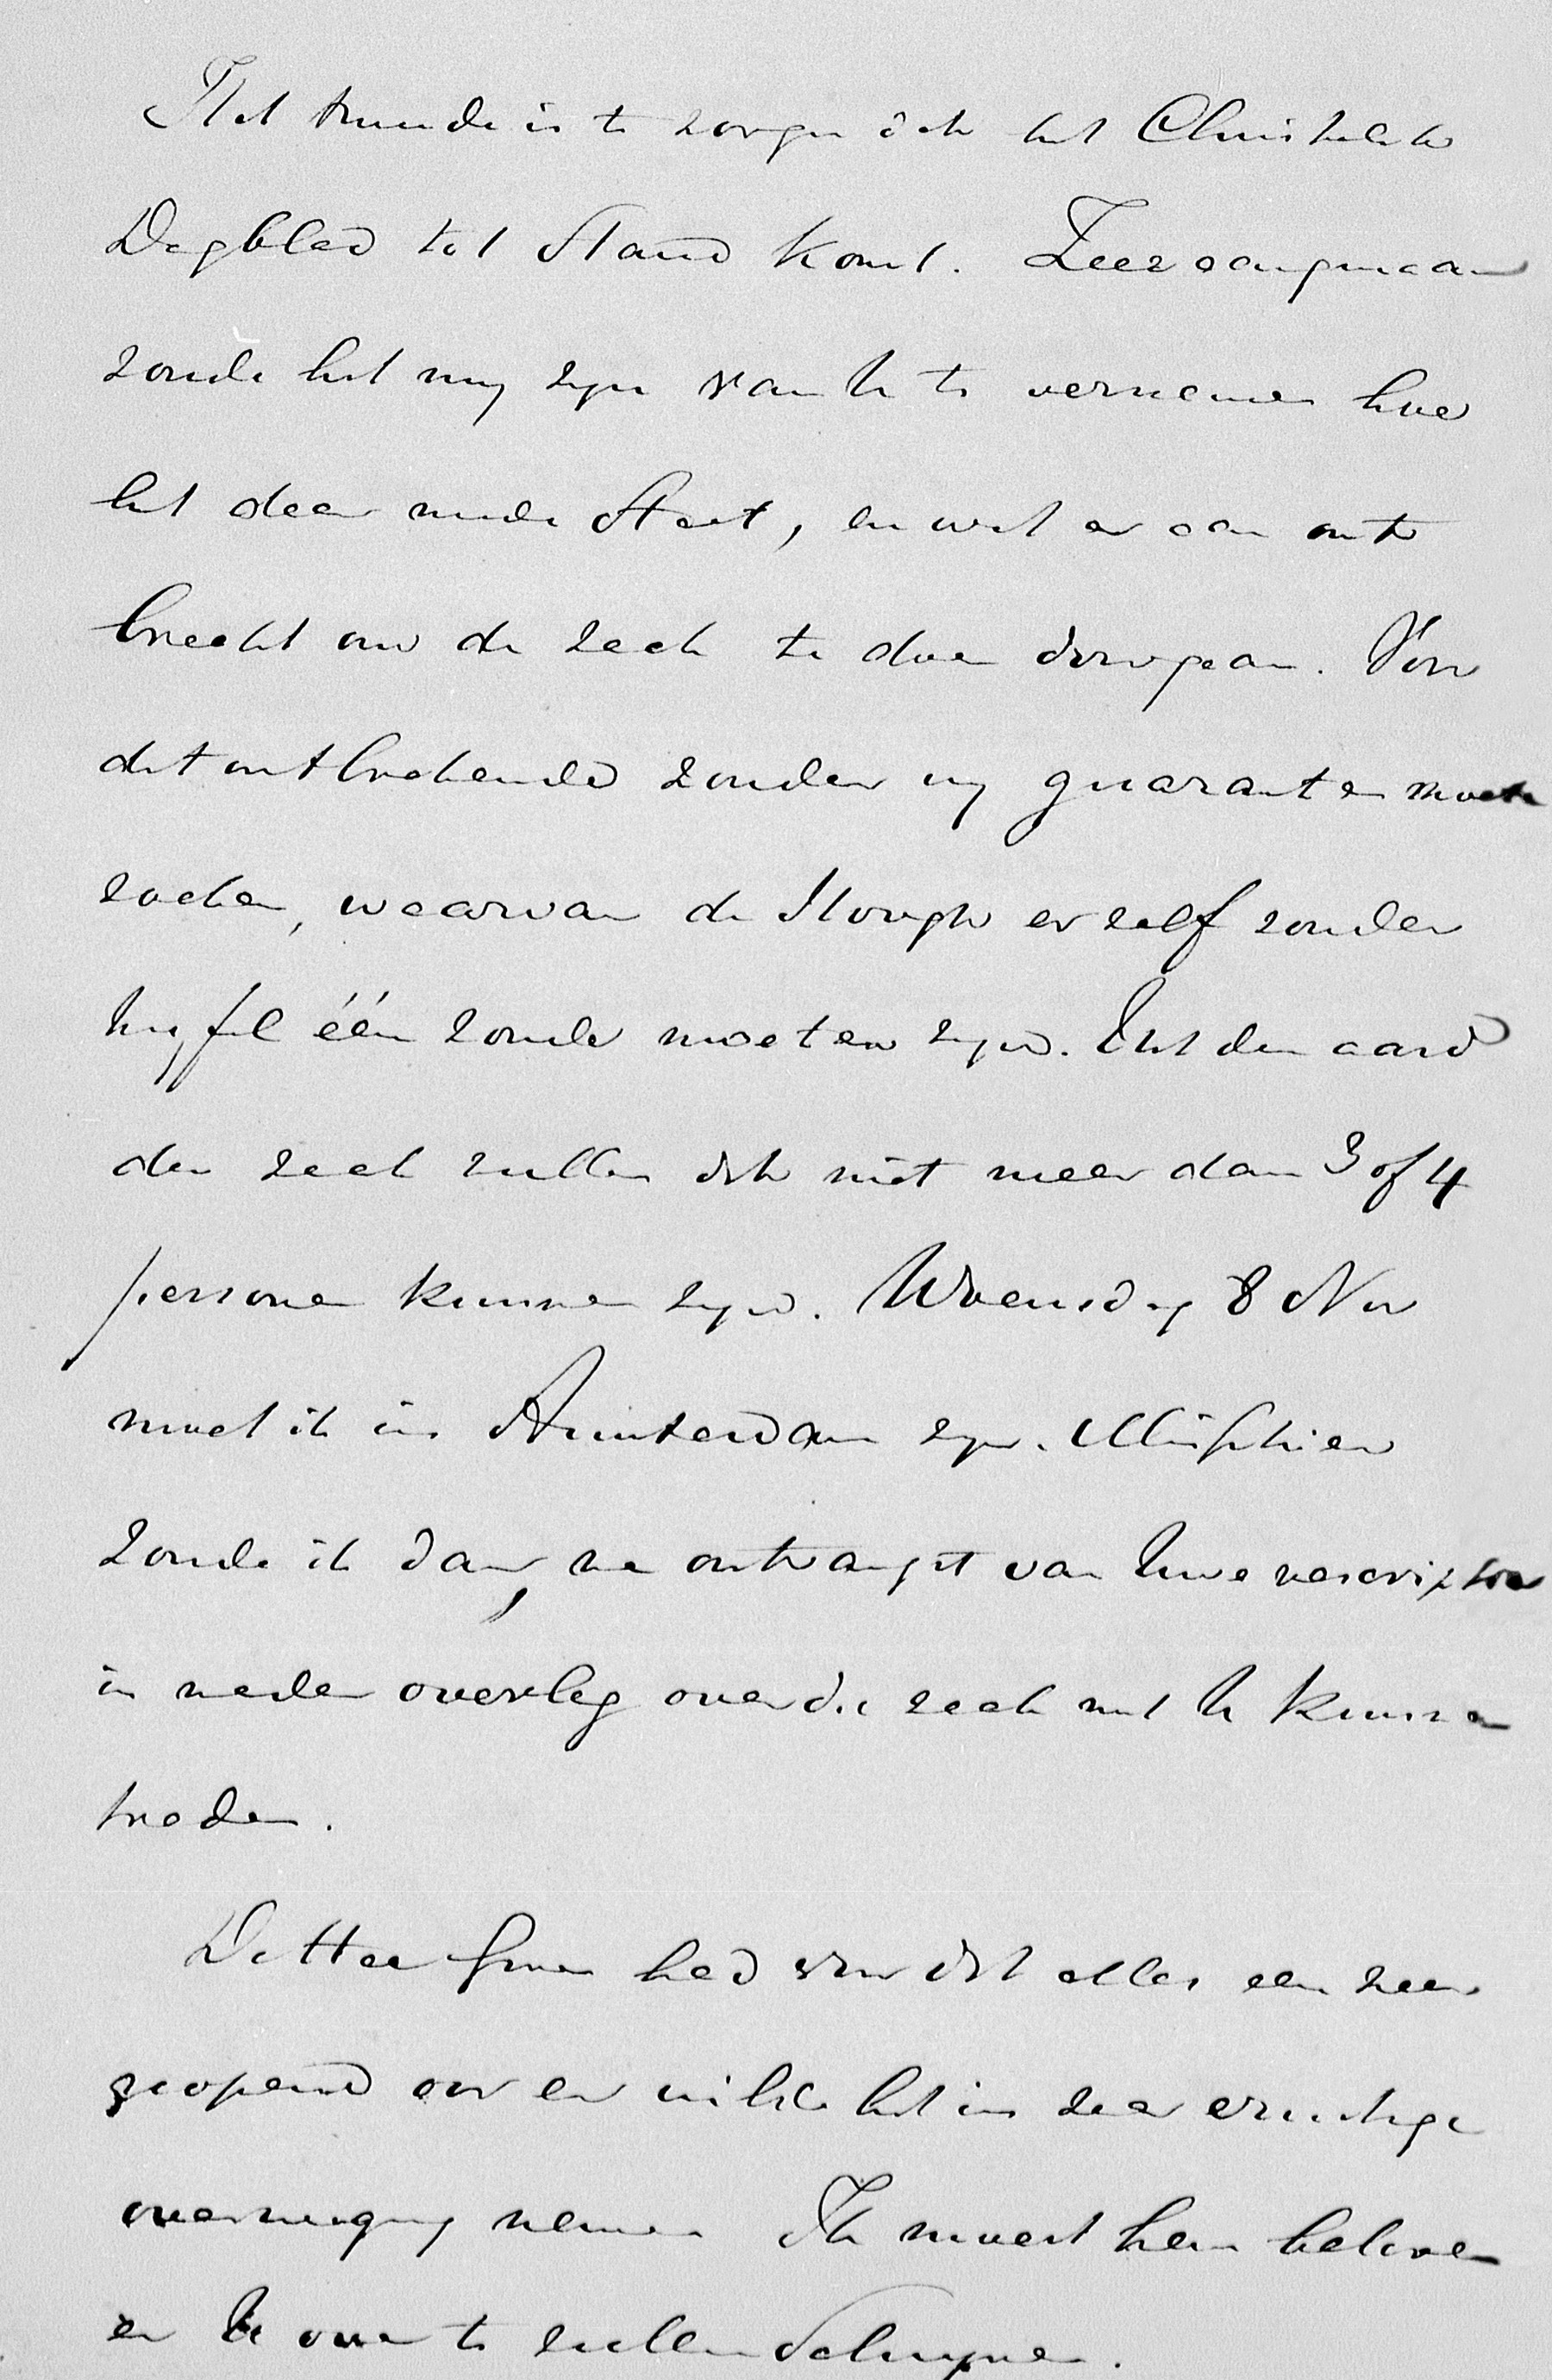 Het tweede is te zorgen dat het Christelijk
Dagblad tot stand komt. Zeer aangenaam
zoude het mij zijn van U te vernemen hoe
het daar mede staat, en wat er aan ont
breekt om de zaak te doen doorgaan. Voor
dit ontbrekende zouden wij guaranten moeten
zoeken, waarvan de er zelf zonder
twijfel één zoude moeten zijn. Uit den aard
der zaak zullen dit niet meer dan 3 of 4
personen kunnen zijn. Woensdag 8 Nov
moet ik in Amsterdam zijn. Misschien
zoude ik dan, na ontvangst van Uwe rescriptie
in nader overleg over die zaak met U kunnen
treden.
De Heer had voor dit alles een zeer
geopend oor en wilde het in zeer ernstige
overweging nemen Ik moest hem beloven
er U over te zullen schrijven.